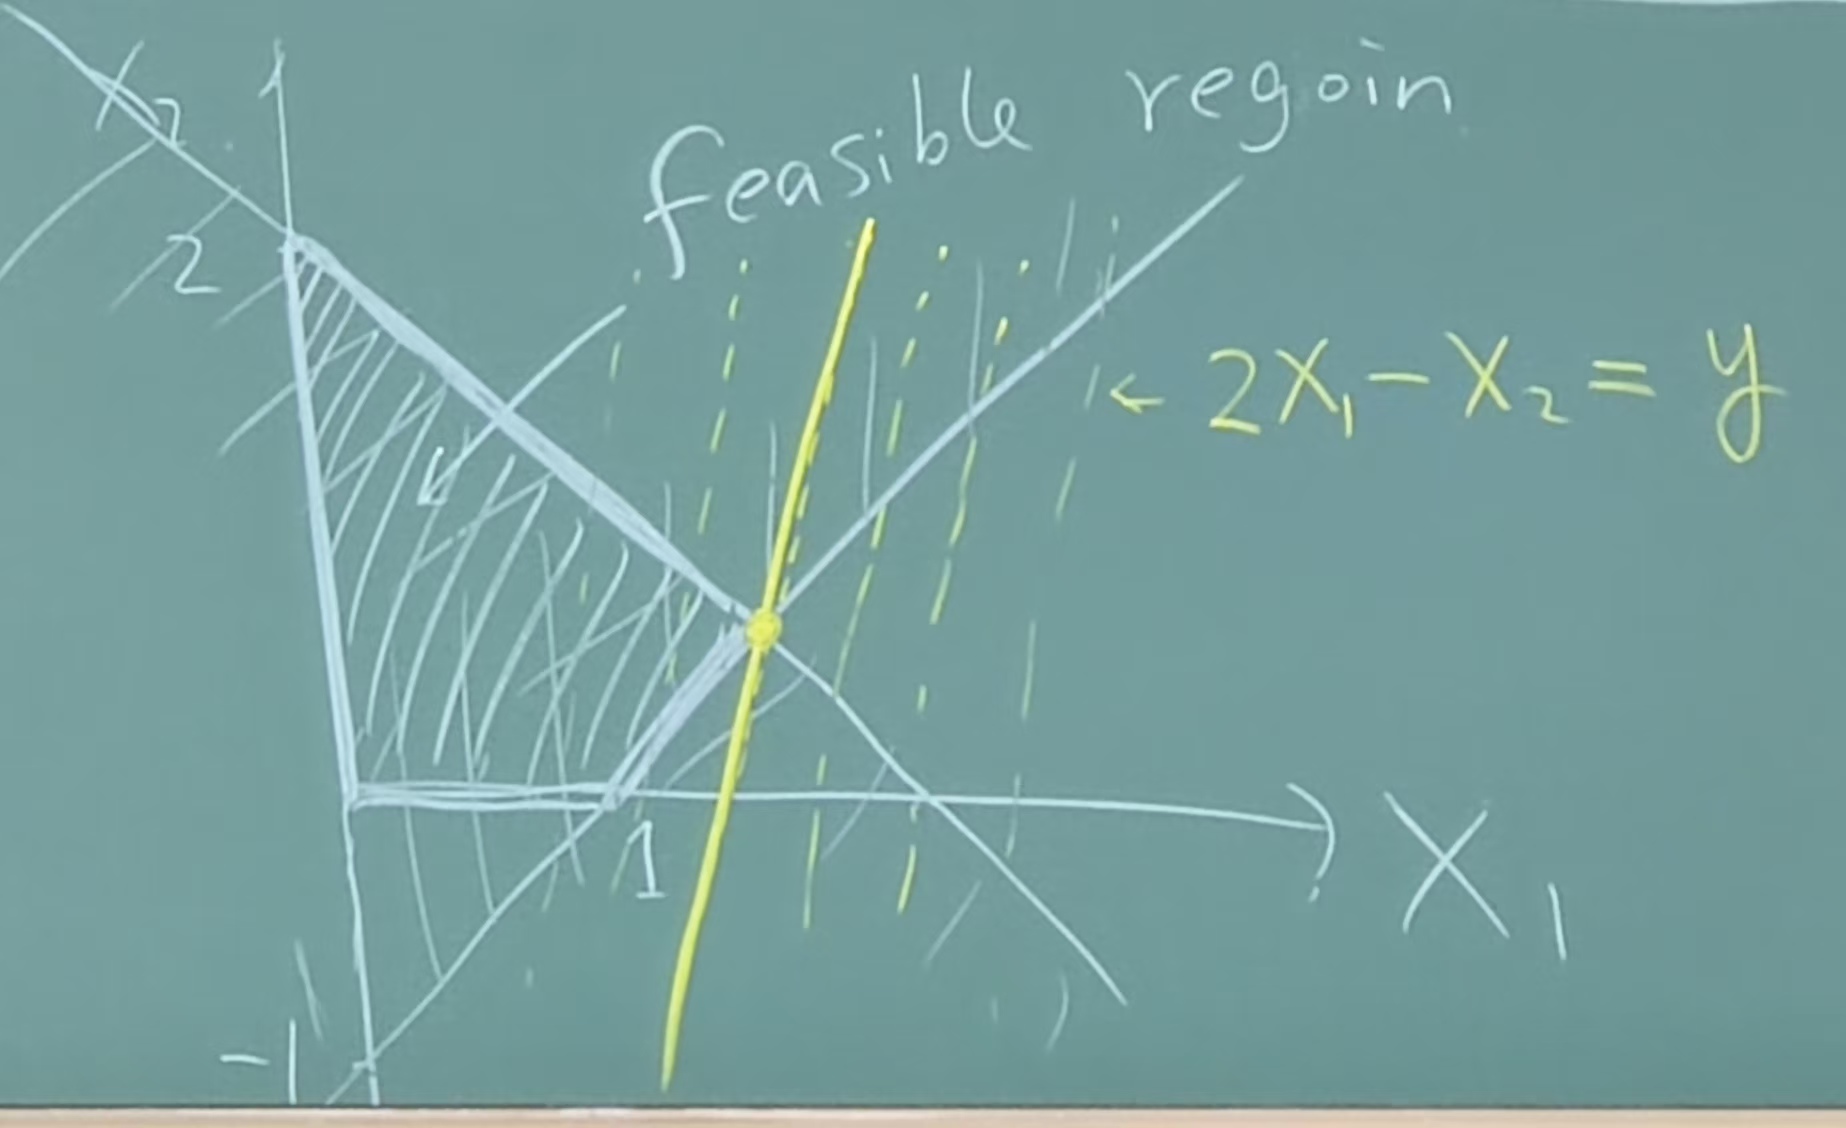 X₂
feasible regoin
2
← 2X₁ - X₂ = y
1
X₁
-1